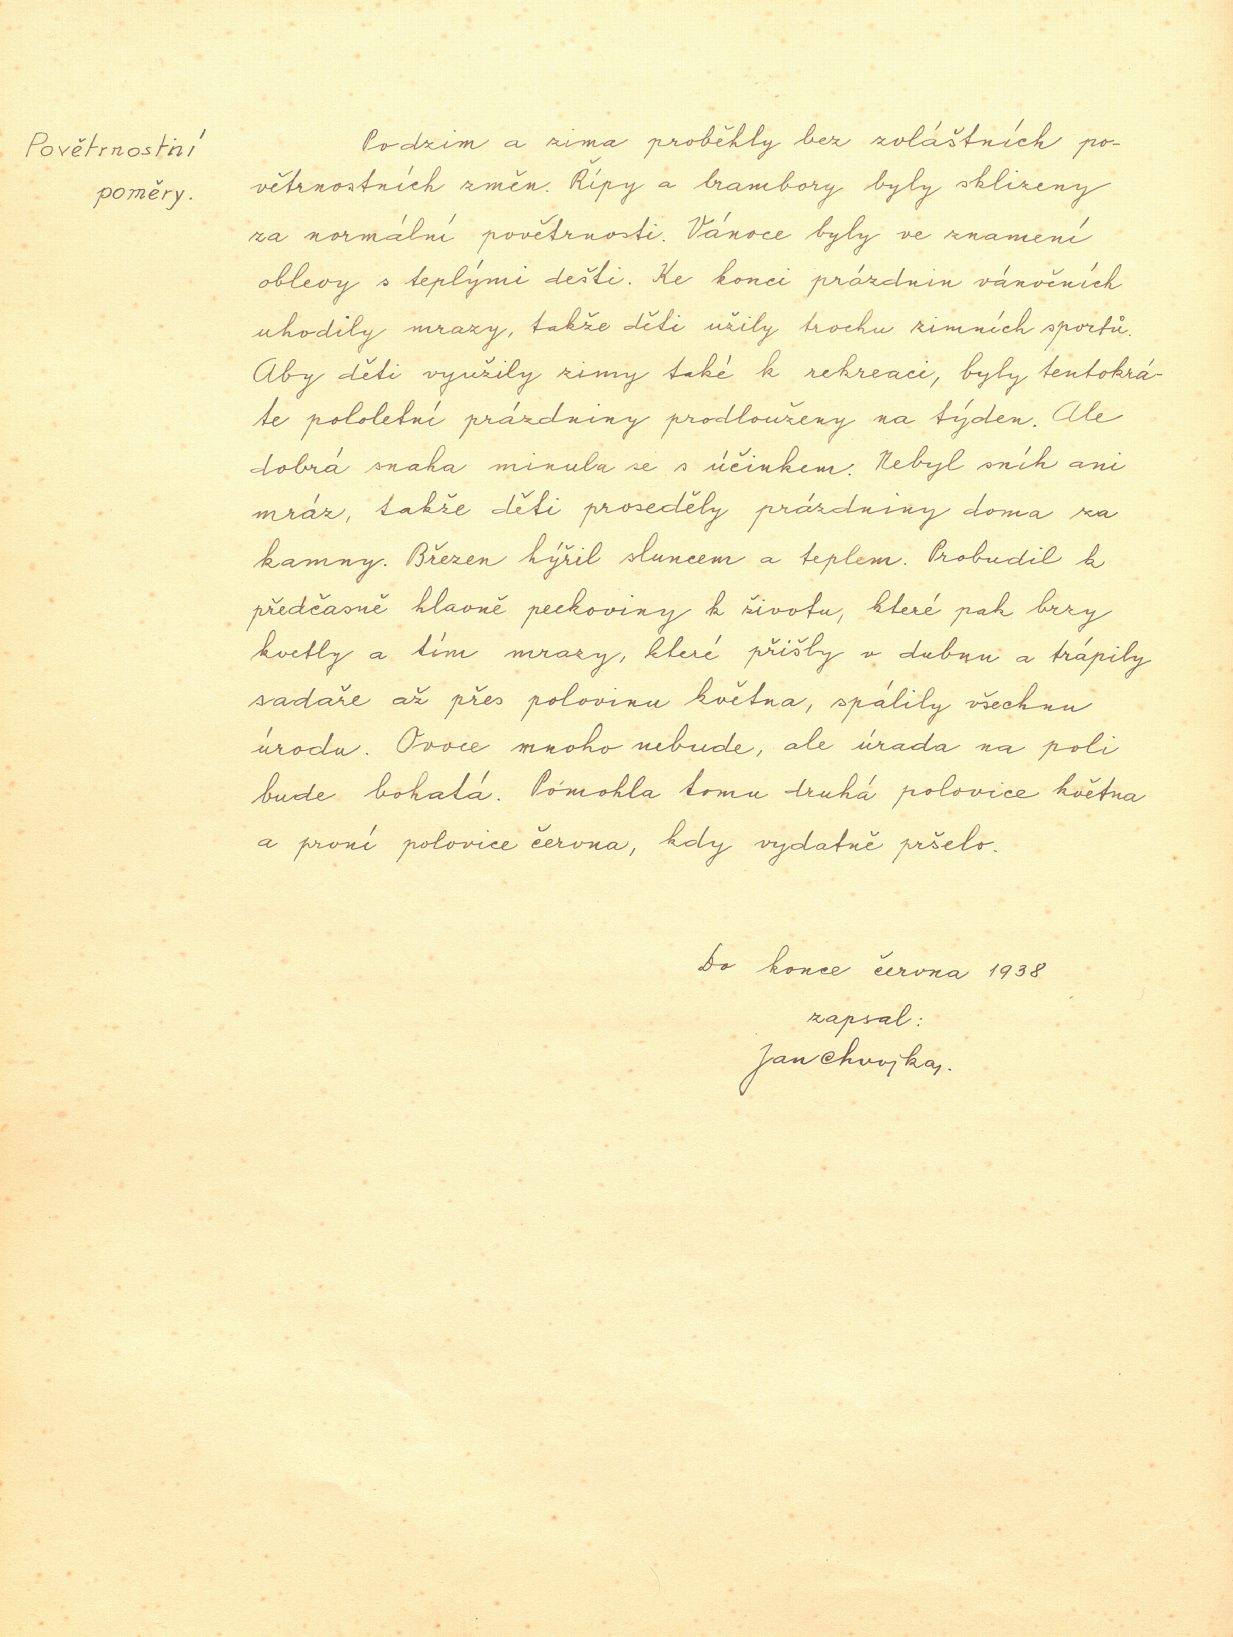 Povětrnostní
poměry.
Podzim a zima proběhly bez zvláštních po-
větrnostních změn. Řípy a brambory byly sklizeny
za normální povětrnosti. Vánoce byly ve znamení
oblevy s teplými dešti. Ke konci prázdnin vánočních
uhodily mrazy, takže děti užily trochu zimních sportů.
Aby děti využily zimy také k rekreaci, byly tentokrá-
te pololetní prázdniny prodlouženy na týden. Ale
dobrá snaha minula se s účinkem. Nebyl sníh ani
mráz, takže děti proseděly prázdniny doma za
kamny. Březen hýřil sluncem a teplem. Probudil k
předčasně hlavně peckoviny k životu, které pak brzy
kvetly a tím mrazy, které přišly v dubnu a trápily
sadaře až přes polovinu května, spálily všechnu
úrodu. Ovoce mnoho nebude, ale úrada na poli
bude bohatá. Pomohla tomu druhá polovice května
a první polovice června, kdy vydatně pršelo.
Do konce června 1938
zapsal:
Jan Chvojka.